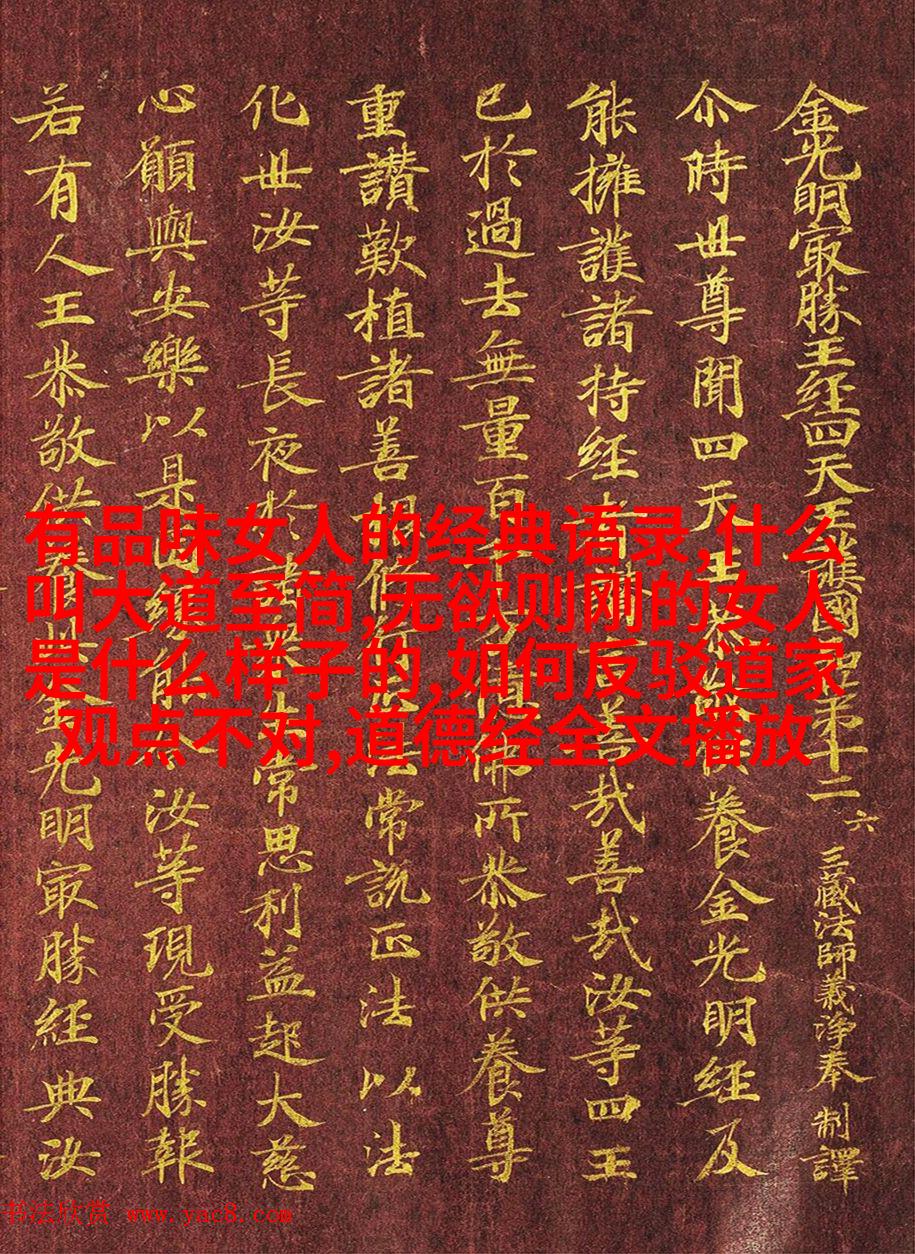 金光明㝡勝王經四天王護國品第十二 六 三藏法師義淨奉 制譯
尒時世尊聞四天王恭供養金光明經及
能擁護諸持經者善哉善哉汝等四王
已於過去無量百千佛所恭敬供養尊
重讚歎植諸善根修行法常說正法以法
化世汝等長夜於諸生常思利益起大慈
心願與安樂以是因緣能汝等現受勝報
若有人王恭敬供養光明㝡勝經典汝
有品味女人的经典语录,什么
叫大道至简,无欲则刚的女人
是什么样子的,如何反驳道家
观点不对,道德经全文播放
书法欣赏 www.yac8.com